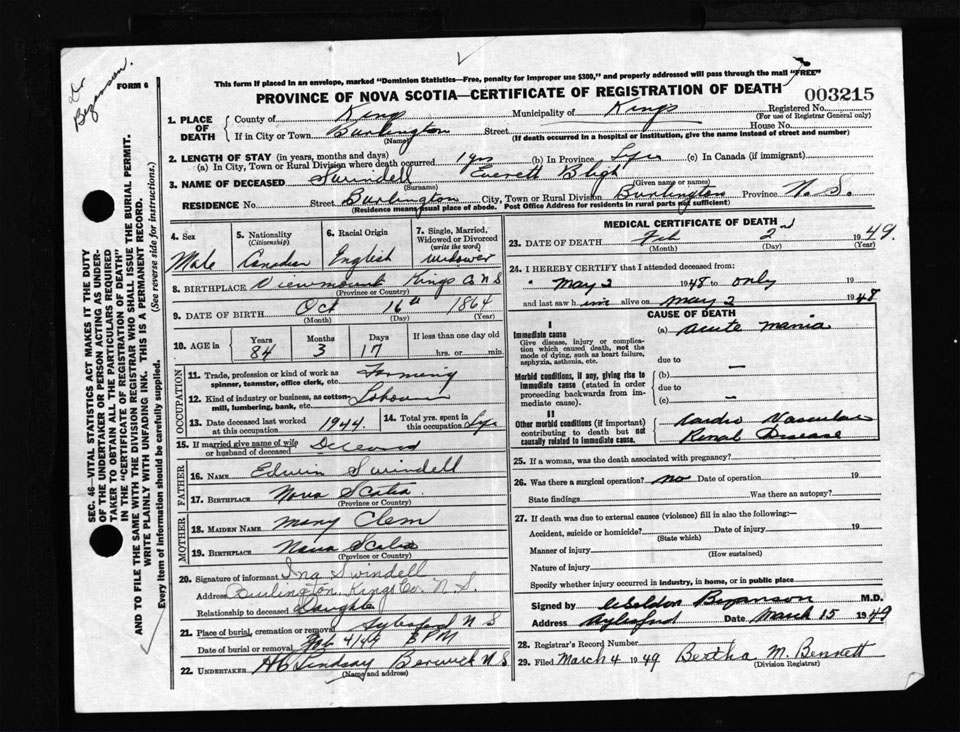 Dr
Bezanson.
FORM 6
This form if placed in an envelope, marked "Dominion Statistics—Free, penalty for improper use $300," and properly addressed will pass through the mail "FREE"
PROVINCE OF NOVA SCOTIA—CERTIFICATE OF REGISTRATION OF DEATH
003215
1. PLACE OF DEATH
County of Kings Municipality of Kings Registered No.
(For use of Registrar General only)
If in City or Town Burlington Street House No.
(Name) (If death occurred in a hospital or institution, give the name instead of street and number)
2. LENGTH OF STAY (in years, months and days)
(a) In City, Town or Rural Division where death occurred 1 yrs (b) In Province Life (c) In Canada (if immigrant)
3. NAME OF DECEASED Swindell Everett Bligh
(Surname) (Given name or names)
RESIDENCE No. Street Burlington City, Town or Rural Division Burlington Province N.S.
(Residence means usual place of abode. Post Office Address for residents in rural parts not sufficient)
4. Sex
Male
5. Nationality
(Citizenship)
Canadian
6. Racial Origin
English
7. Single, Married, Widowed or Divorced
(write the word)
Widower
8. BIRTHPLACE Viewmount Kings Co N S
(Province or Country)
9. DATE OF BIRTH Oct 16th 1864
(Month) (Day) (Year)
10. AGE in
Years Months Days If less than one day
84 3 17 hrs. or min.
OCCUPATION
11. Trade, profession or kind of work as spinner, teamster, office clerk, etc. Farming
12. Kind of industry or business, as cotton-mill, lumbering, bank, etc.
13. Date deceased last worked at this occupation 1944.
14. Total yrs. spent in this occupation Life
15. If married give name of wife or husband of deceased Deceased
FATHER
16. NAME Edwin Swindell
17. BIRTHPLACE Nova Scotia.
(Province or Country)
MOTHER
18. MAIDEN NAME Mary Clem
19. BIRTHPLACE Nova Scotia
(Province or Country)
20. Signature of informant Ina Swindell
Address Burlington Kings Co. N.S.
Relationship to deceased Daughter
21. Place of burial, cremation or removal Aylesford N S
Date of burial or removal Feb 4/49 3 PM
22. UNDERTAKER Lindsay Berwick N S
(Name and address)
MEDICAL CERTIFICATE OF DEATH
23. DATE OF DEATH Feb 2nd 1949.
(Month) (Day) (Year)
24. I HEREBY CERTIFY that I attended deceased from:
May 2 1948 to only 19
and last saw him alive on May 2 1948
CAUSE OF DEATH
I
Immediate cause (a) Acute Mania
Give disease, injury or complication which caused death, not the mode of dying, such as heart failure, asphyxia, asthenia, etc.
due to
Morbid conditions, if any, giving rise to immediate cause (stated in order proceeding backwards from immediate cause).
(b) —
due to
(c) —
II
Other morbid conditions (if important) contributing to death but not causally related to immediate cause.
Cardio Vascular
Renal Disease
25. If a woman, was the death associated with pregnancy?
26. Was there a surgical operation? No Date of operation 19
State findings Was there an autopsy?
27. If death was due to external causes (violence) fill in also the following:—
Accident, suicide or homicide? Date of injury 19
(State which)
Manner of injury
(How sustained)
Nature of injury
Specify whether injury occurred in industry, in home, or in public place
Signed by Weldon Bezanson M.D.
Address Aylesford Date March 15 1949
28. Registrar's Record Number
29. Filed March 4 1949 Bertha M. Bennett
(Division Registrar)
SEC. 46—VITAL STATISTICS ACT MAKES IT THE DUTY
OF THE UNDERTAKER OR PERSON ACTING AS UNDER-
TAKER TO OBTAIN ALL THE PARTICULARS REQUIRED
IN THE "CERTIFICATE OF REGISTRATION OF DEATH"
AND TO FILE THE SAME WITH THE DIVISION REGISTRAR WHO SHALL ISSUE THE BURIAL PERMIT.
WRITE PLAINLY WITH UNFADING INK. THIS IS A PERMANENT RECORD.
Every item of information should be carefully supplied. (See reverse side for instructions.)